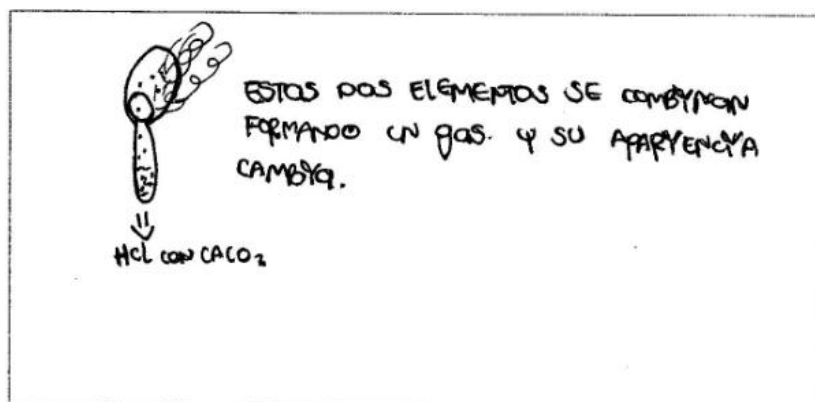 ESTOS DOS ELEMENTOS SE COMBYNAN
FORMANDO UN gas. Y SU APARYENCYA
CAMBYA.
HCL CON CACO₃